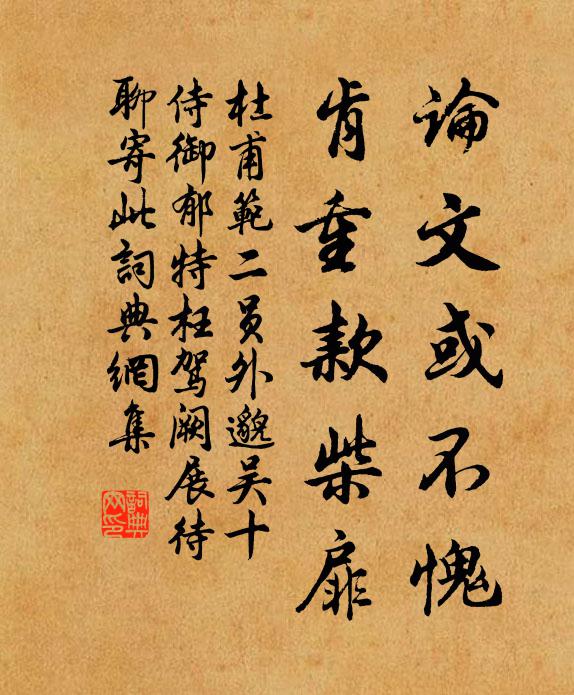 論文或不愧
肯重款柴扉
杜甫範二員外邈吴十
侍御郁特枉駕闕展待
聊寄此詞典網集